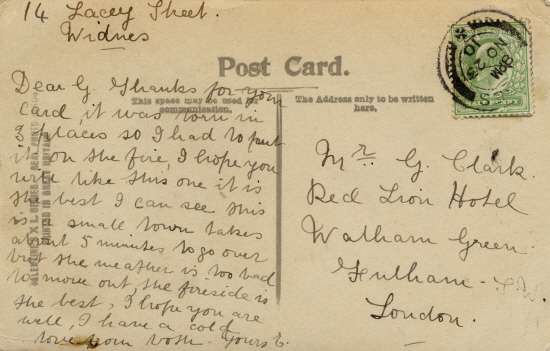 14 Lacey Street.
Widnes
Post Card.
This space may be used for communication.
The Address only to be written here.
Dear G. Thanks for your
card, it was torn in
3 places so I had to put
it on the fire, I hope you
will like this one it is
the best I can see this
is a small town takes
about 5 minutes to go over
but the weather is too bad
to move out, the fireside is
the best, I hope you are
well, I have a cold
love from both. Yours E.
Mr. G. Clark.
Red Lion Hotel
Walham Green.
Fulham
London.
NO 23
10
PRINTED IN GREAT BRITAIN